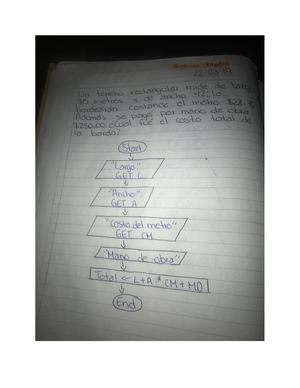 22-03-19
Un terreno rectangular mide de largo
metros y de ancho 42, lo
costando el metro
Además se pago por mano de obra
$1250.00 ¿Cuál fue el costo total de
la barda?
Start
"Largo"
GET L
"Ancho"
GET A
"Costo del metro"
GET CM
"Mano de obra"
Total ← L+A * CM + MO
End